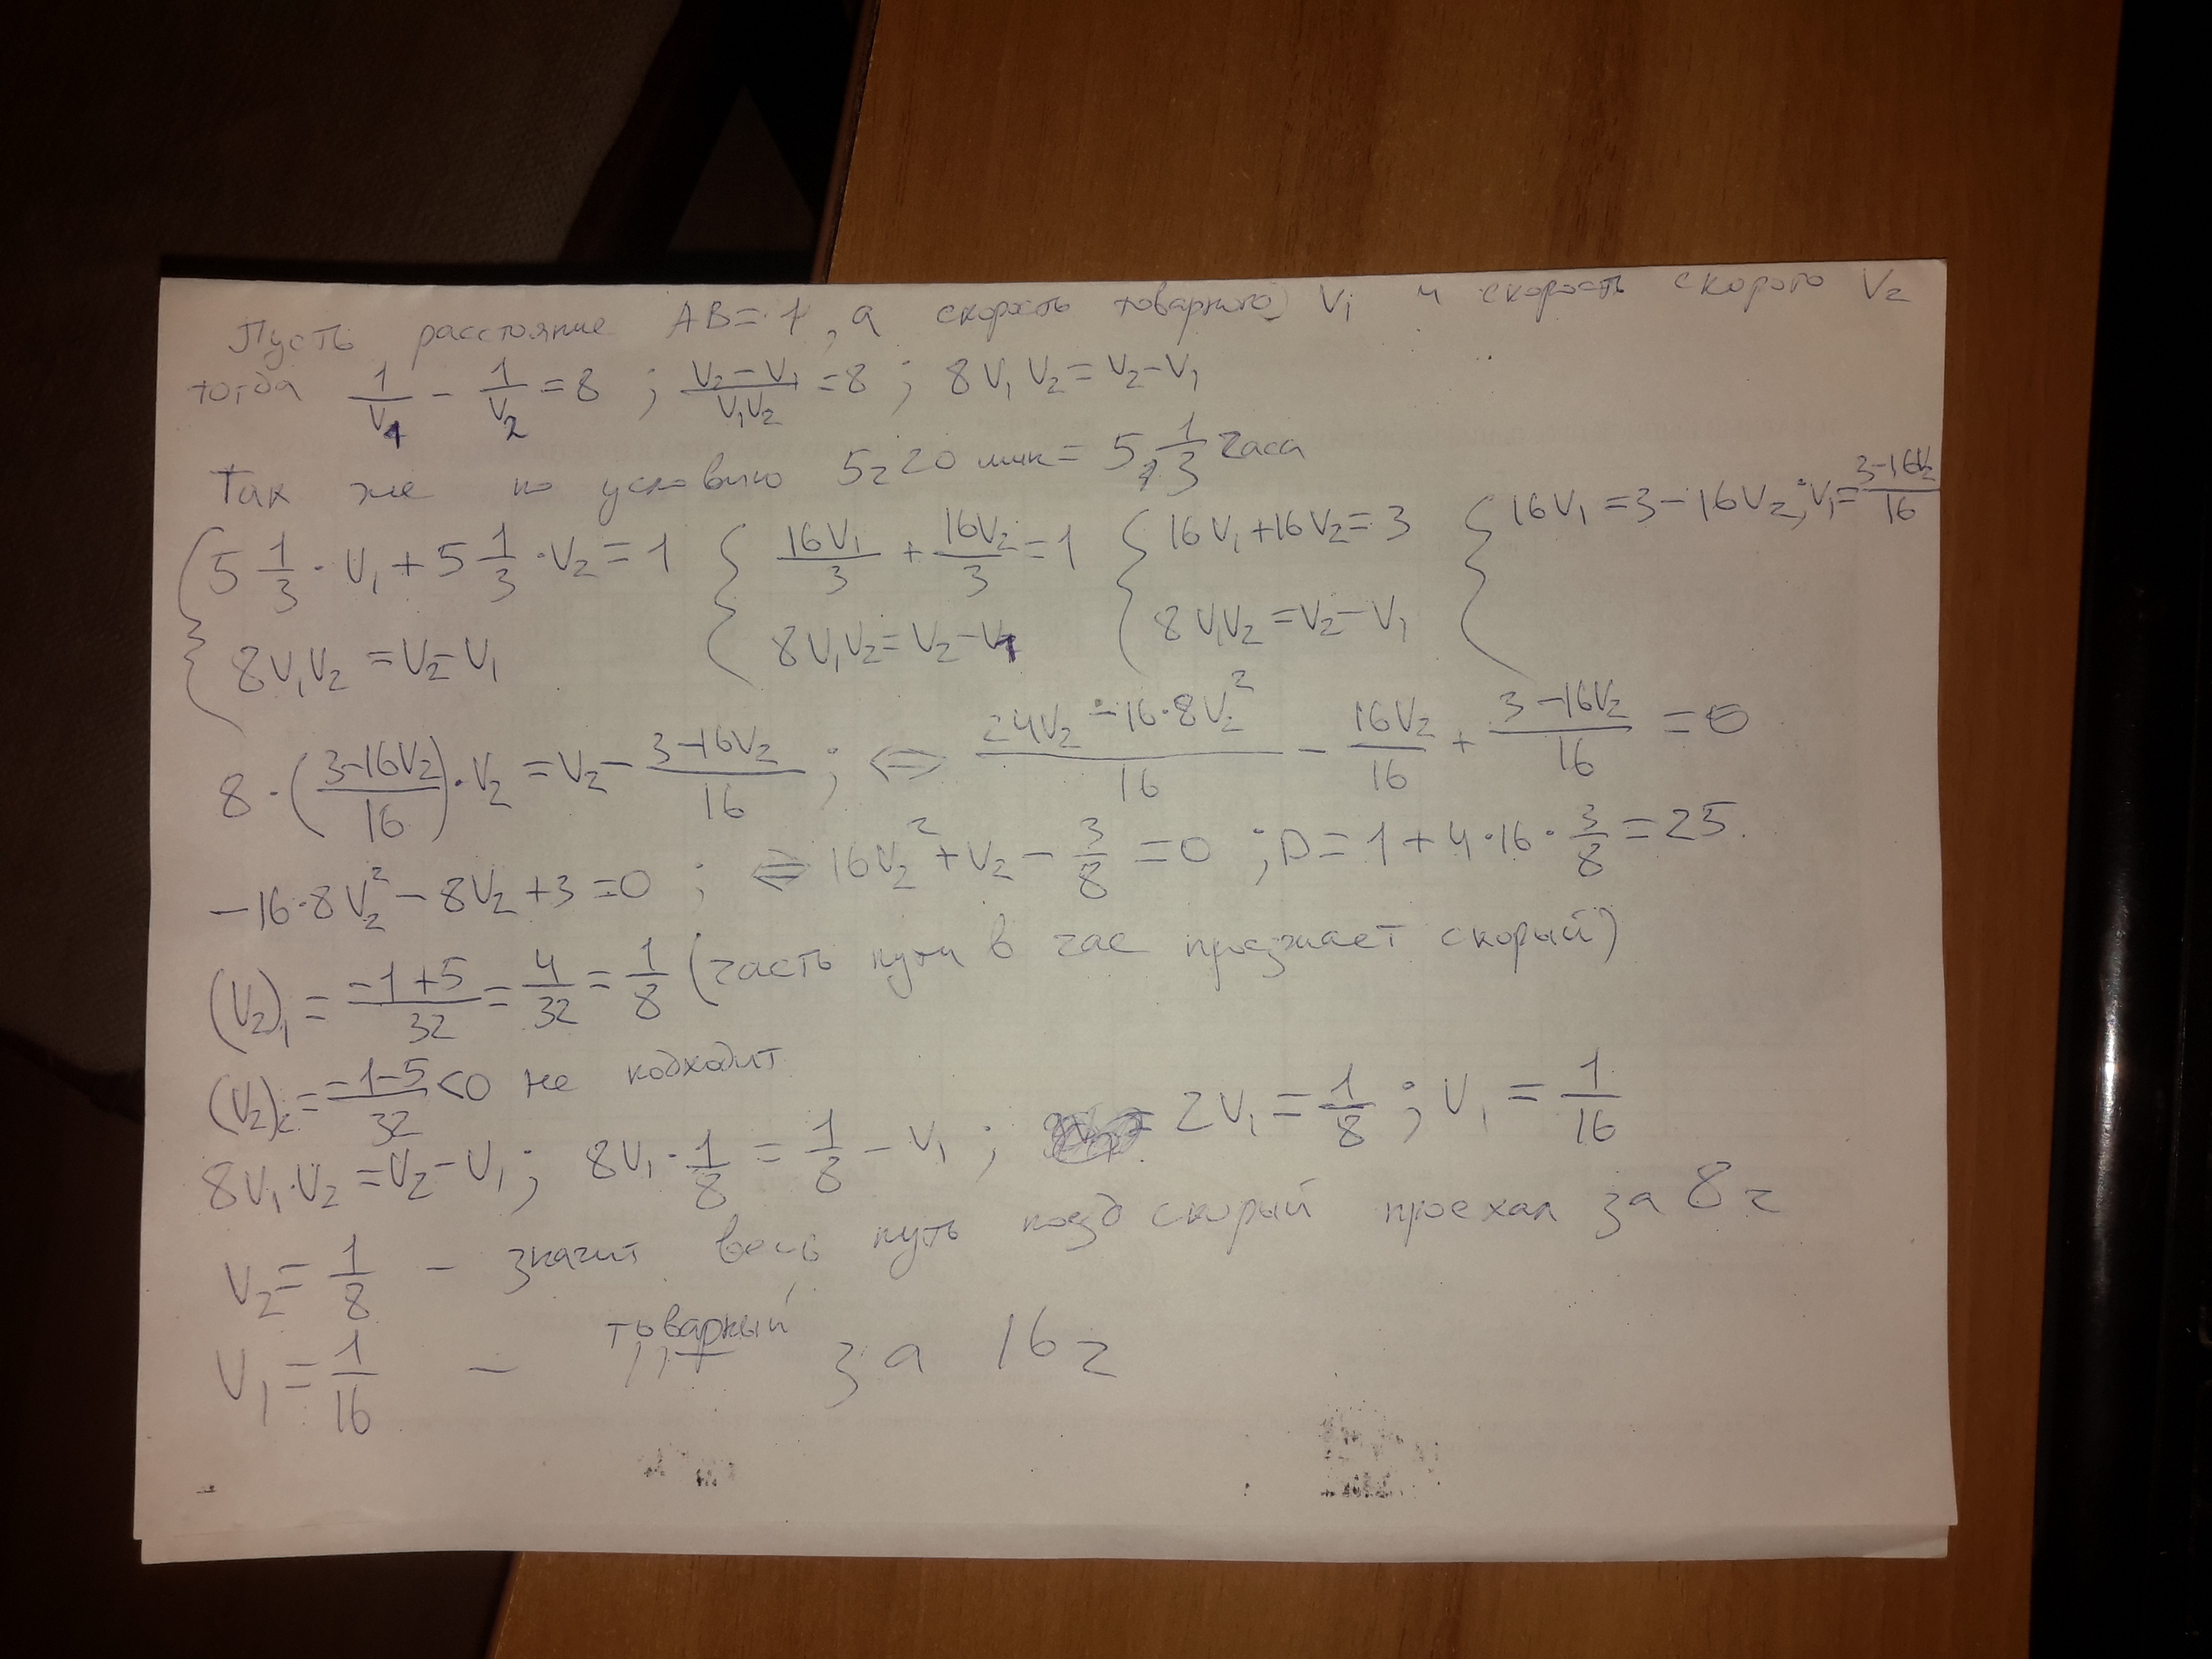 Пусть расстояние AB = 1, а скорость товарного V₁ и скорость скорого V₂
тогда 1/V₁ - 1/V₂ = 8 ; (V₂ - V₁)/(V₁V₂) = 8 ; 8V₁V₂ = V₂ - V₁
Так же по условию 5г 20 мин = 5 1/3 часа
{ 5 1/3 · V₁ + 5 1/3 · V₂ = 1 { 16V₁/3 + 16V₂/3 = 1 { 16V₁ + 16V₂ = 3 { 16V₁ = 3 - 16V₂ ; V₁ = (3 - 16V₂)/16
8V₁V₂ = V₂ - V₁ 8V₁V₂ = V₂ - V₁ 8V₁V₂ = V₂ - V₁
8 · ((3 - 16V₂)/16) · V₂ = V₂ - (3 - 16V₂)/16 ; <=> (24V₂ - 16·8V₂²)/16 - 16V₂/16 + (3 - 16V₂)/16 = 0
-16·8V₂² - 8V₂ + 3 = 0 ; <=> 16V₂² + V₂ - 3/8 = 0 ; D = 1 + 4·16·3/8 = 25.
(V₂)₁ = (-1 + 5)/32 = 4/32 = 1/8 (часть пути в час проезжает скорый)
(V₂)₂ = (-1 - 5)/32 < 0 не подходит
8V₁·V₂ = V₂ - V₁ ; 8V₁ · 1/8 = 1/8 - V₁ ; 2V₁ = 1/8 ; V₁ = 1/16
V₂ = 1/8 - значит весь путь поезд скорый проехал за 8 ч
V₁ = 1/16 - товарный за 16 ч